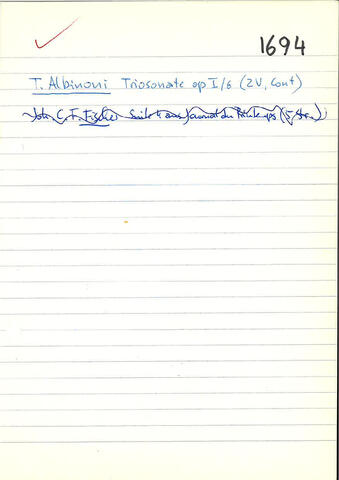 1694
T. Albinoni Triosonate op I/6 (2V, Cont)
Joh. C. F. Fischer Suite aus Journal du Printemps (5 Str.)